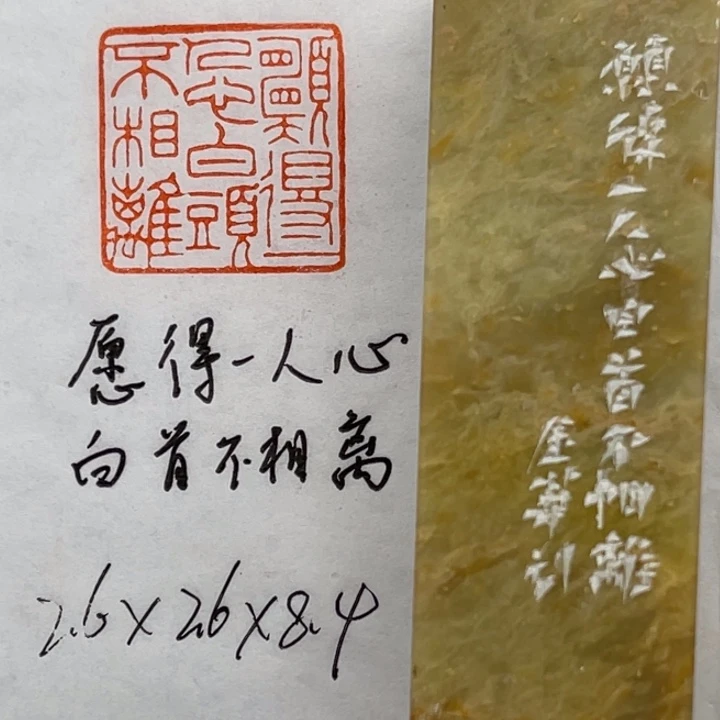 願得一
人心白頭
不相離
愿得一人心
白首不相离
2.6×2.6×8.4
願得一人心白首不相離
金華刻